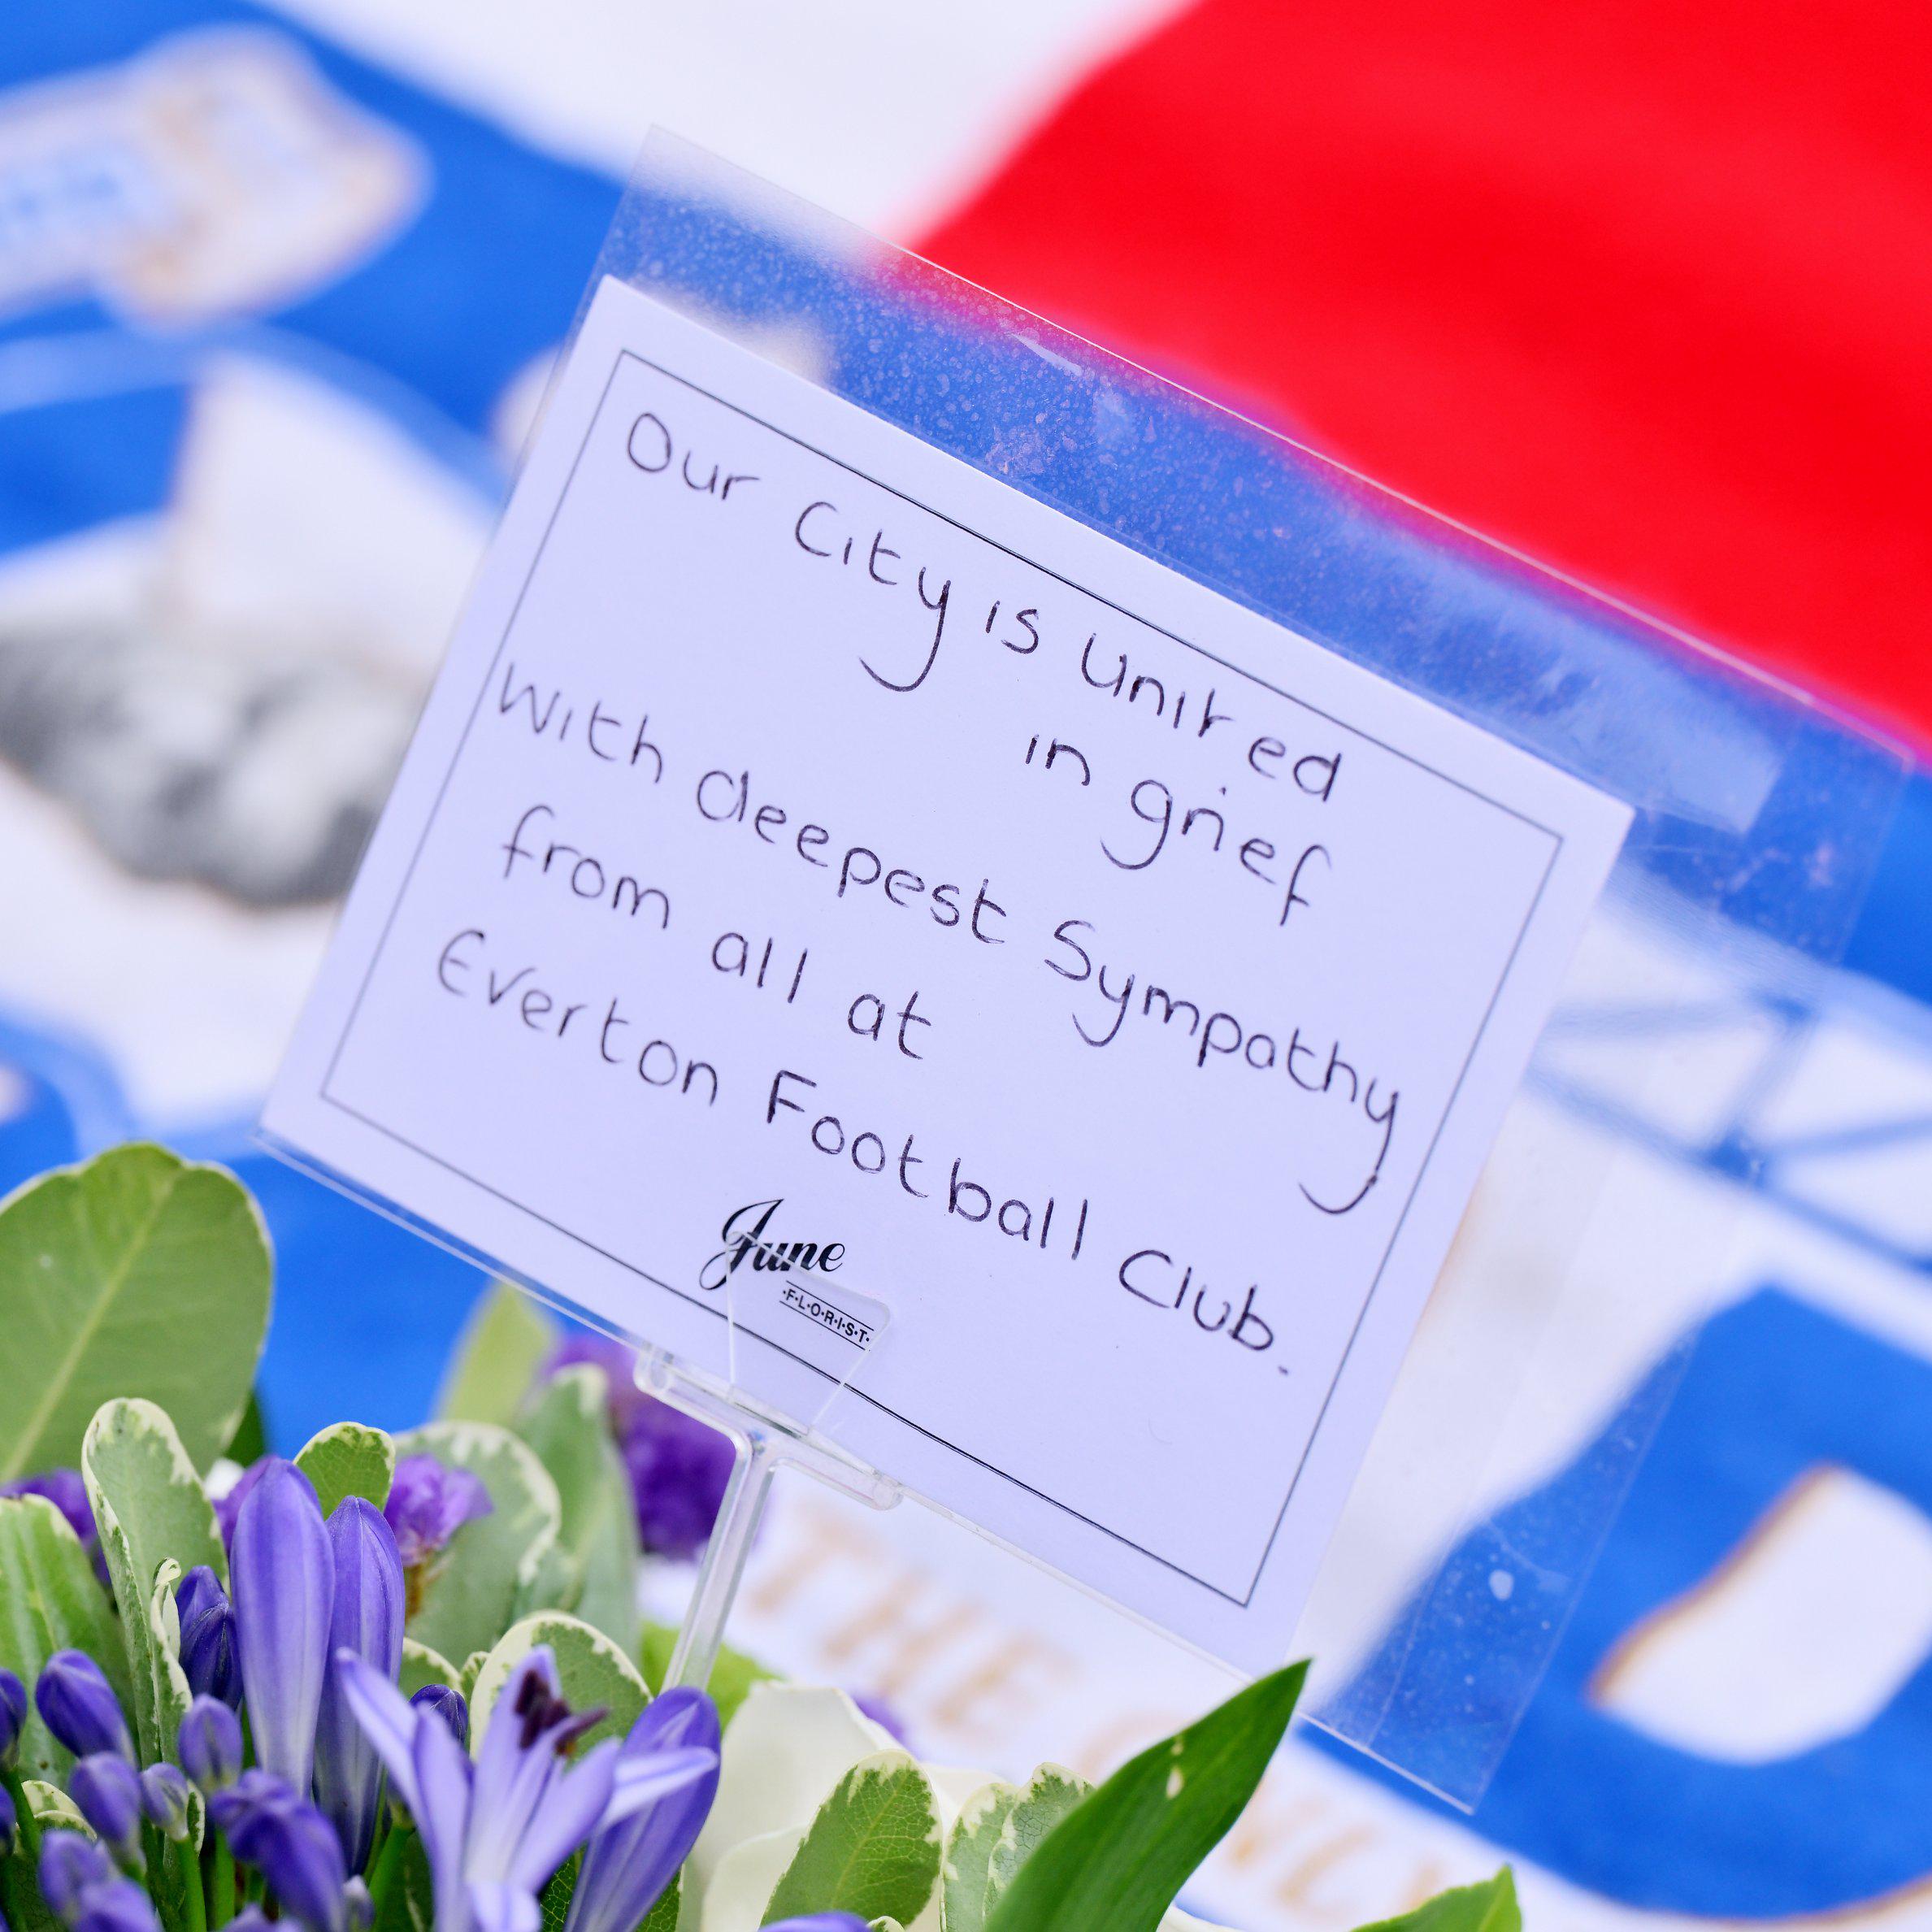 Our City is united
in grief
With deepest Sympathy
from all at
Everton Football Club.
June
·F·L·O·R·I·S·T·
THE